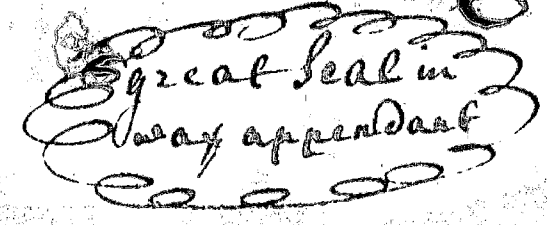 great Seal in
wax appendant